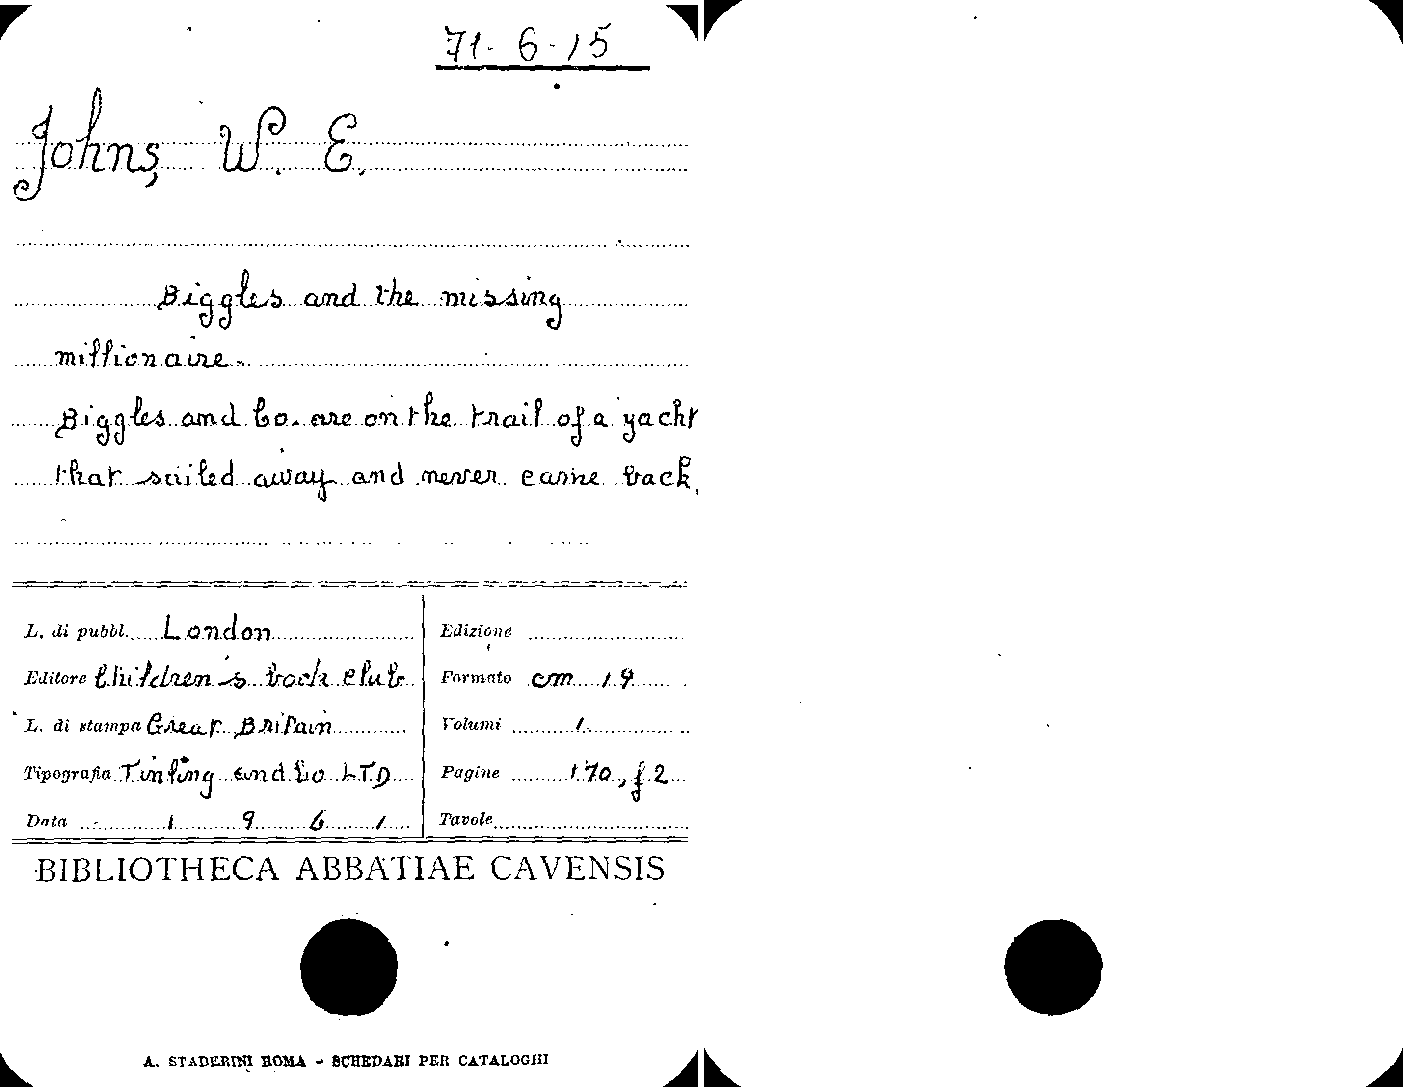 71-6-15
Johns, W. E.
Biggles and the missing
millionaire.
Biggles and Co. are on the trail of a yacht
that sailed away and never came back.
L. di pubbl. London
Editore Children's book club
L. di stampa Great Britain
Tipografia Tinling and Co LTD
Data 1961
Edizione
Formato cm 19
Volumi 1
Pagine 170, f 2
Tavole
BIBLIOTHECA ABBATIAE CAVENSIS
A. STADERINI ROMA - SCHEDARI PER CATALOGHI